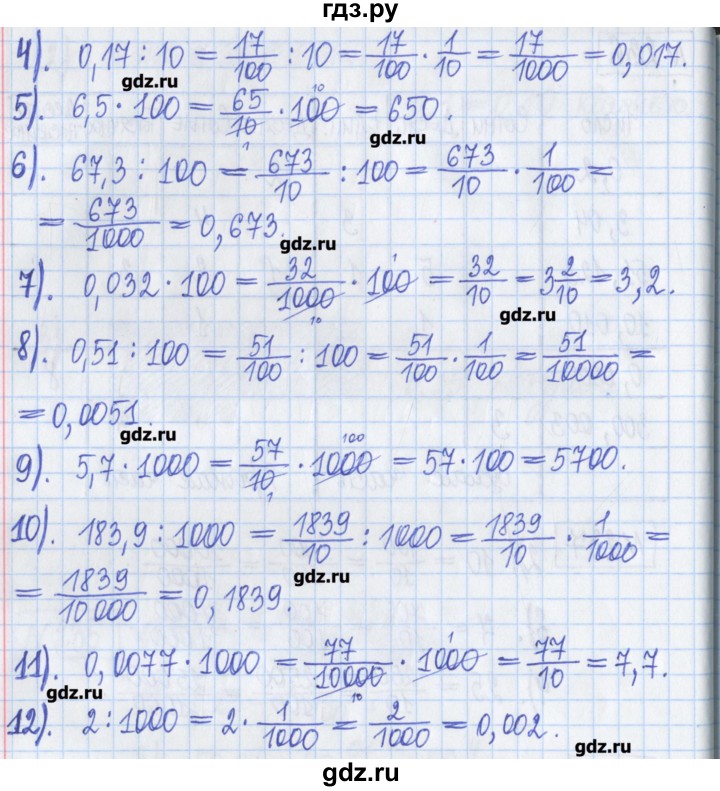 гдз.ру
4). 0,17 : 10 = 17/100 : 10 = 17/100 · 1/10 = 17/1000 = 0,017.
gdz.ru
5). 6,5 · 100 = 65/10 1 · 100 10 = 650.
gdz.ru
6). 67,3 : 100 = 673/10 : 100 = 673/10 · 1/100 =
= 673/1000 = 0,673.
gdz.ru
7). 0,032 · 100 = 32/1000 10 · 100 1 = 32/10 = 3 2/10 = 3,2.
gdz.ru
8). 0,51 : 100 = 51/100 : 100 = 51/100 · 1/100 = 51/10000 =
= 0,0051.
gdz.ru
9). 5,7 · 1000 = 57/10 1 · 1000 100 = 57 · 100 = 5700.
10). 183,9 : 1000 = 1839/10 : 1000 = 1839/10 · 1/1000 =
gdz.ru
= 1839/10 000 = 0,1839.
11). 0,0077 · 1000 = 77/10000 10 · 1000 1 = 77/10 = 7,7.
gdz.ru
12). 2 : 1000 = 2 · 1/1000 = 2/1000 = 0,002.
gdz.ru
gdz.ru